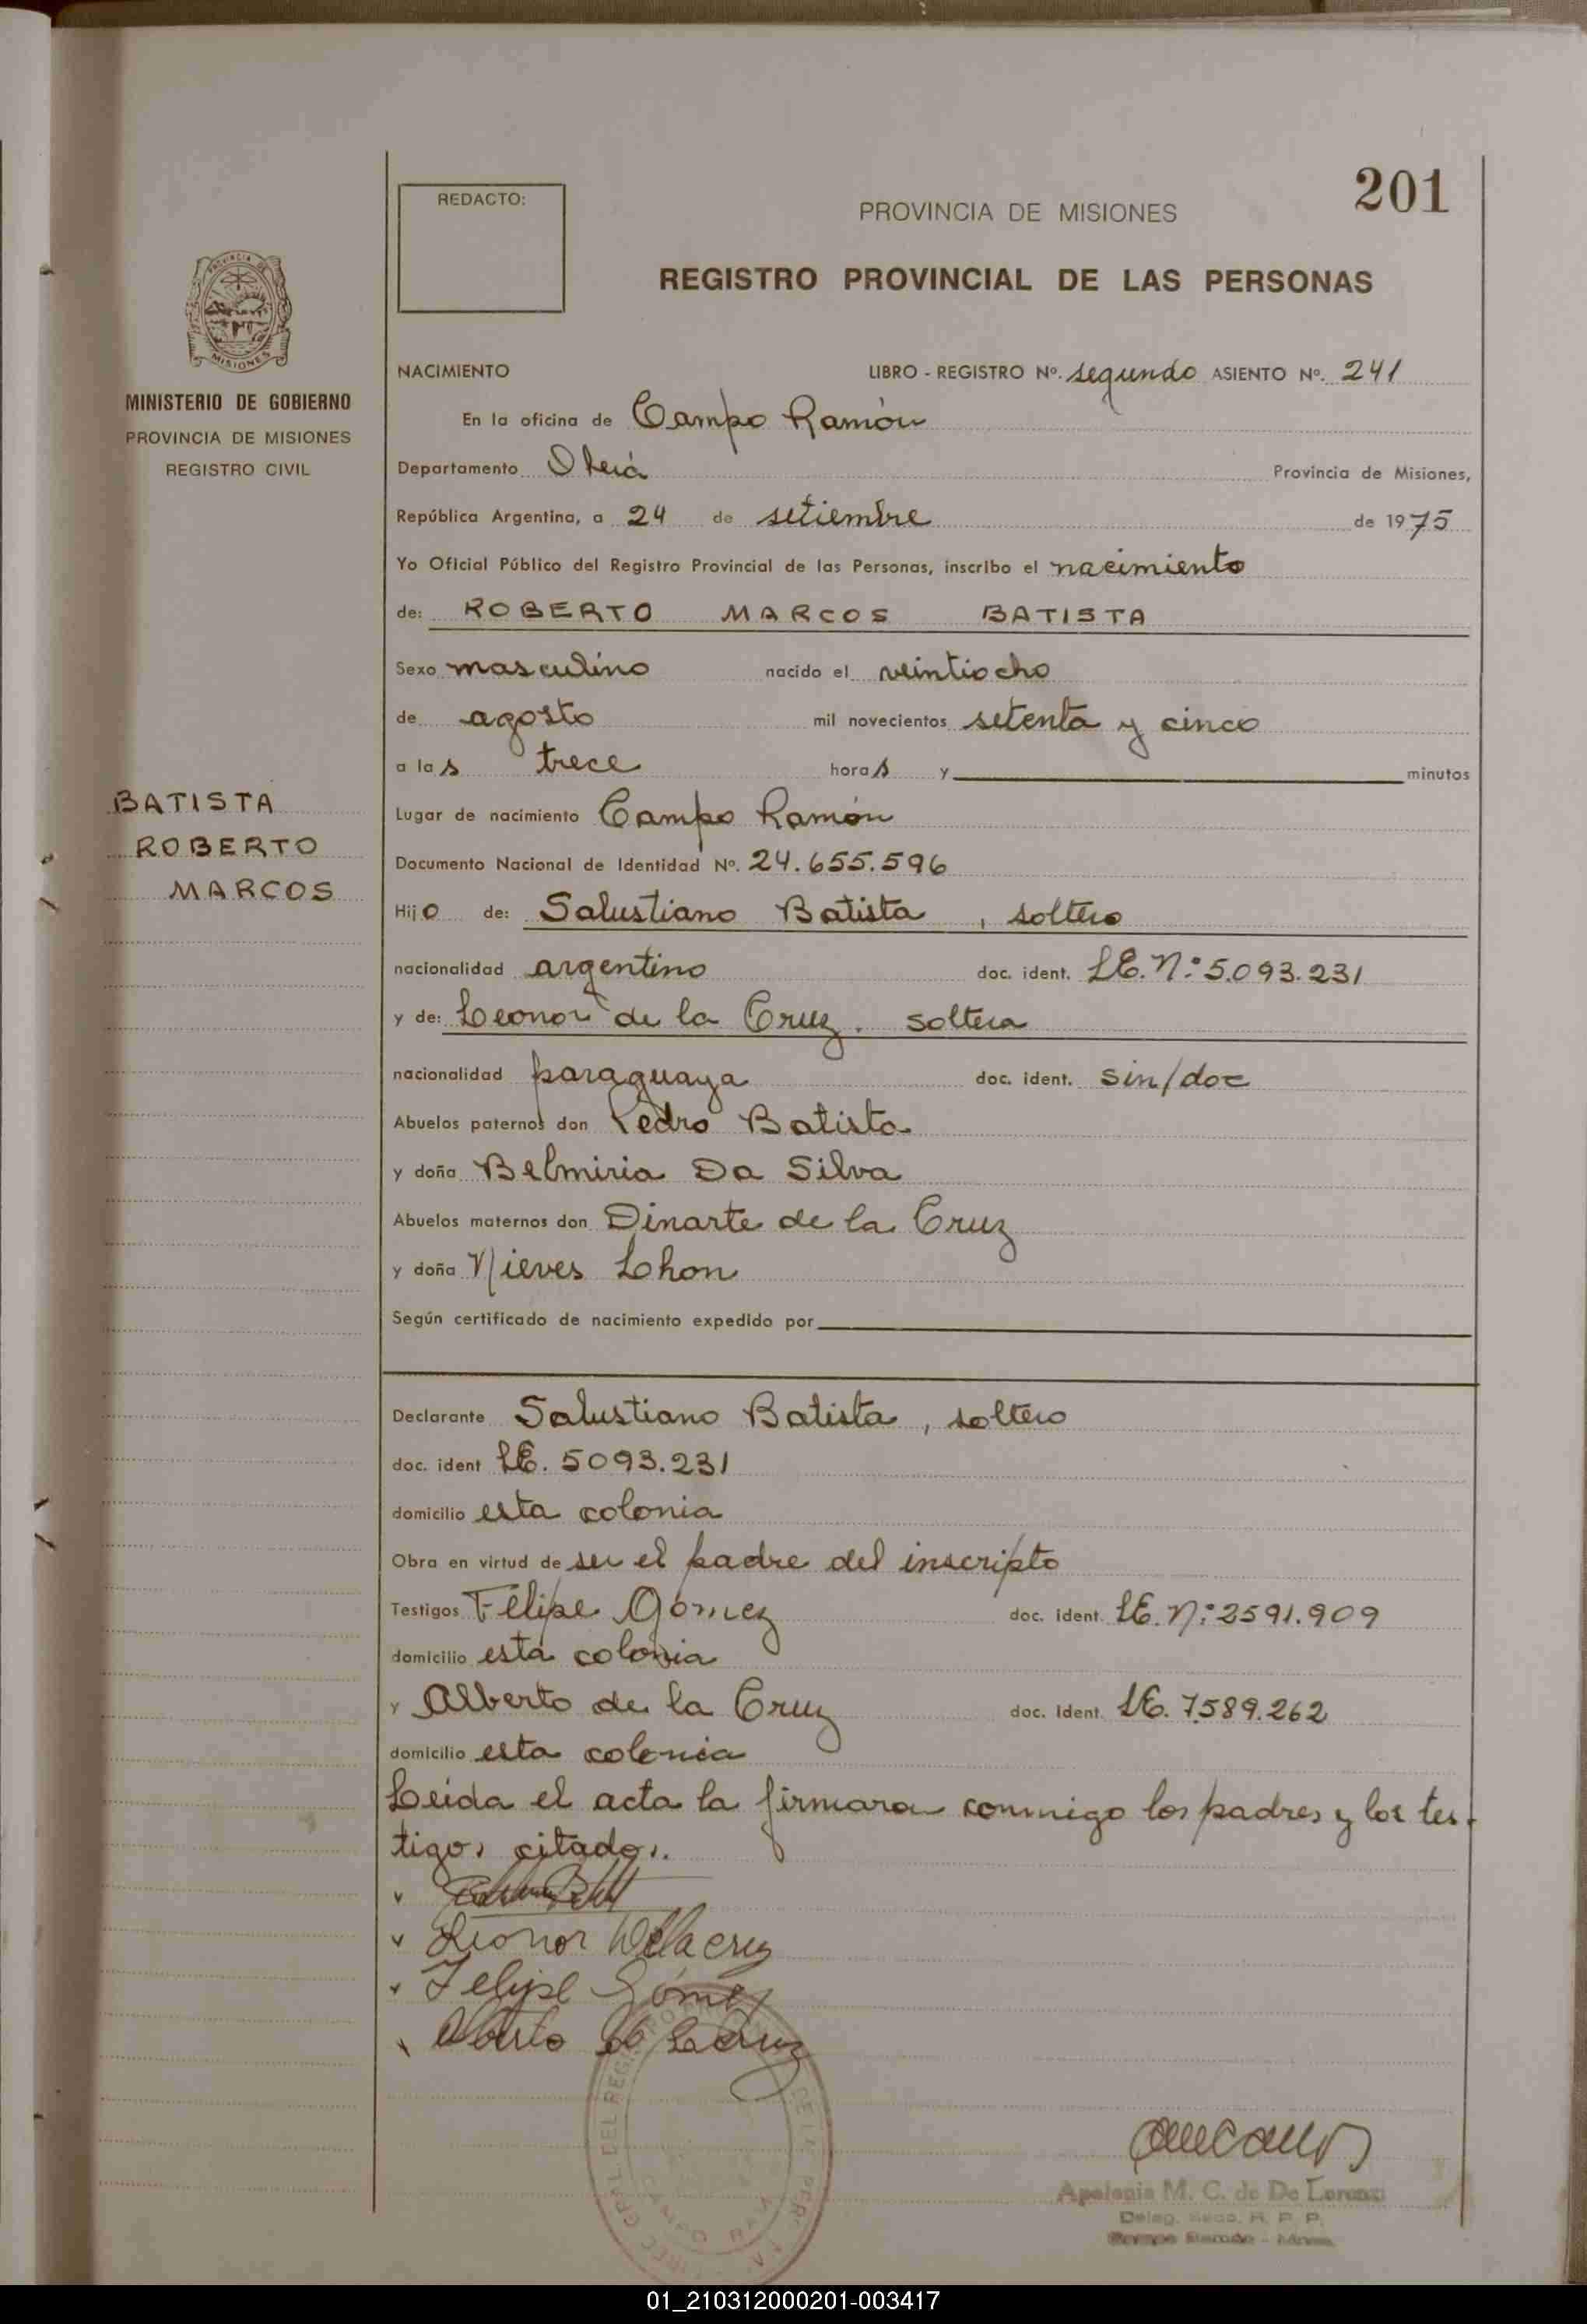 201
REDACTO:
PROVINCIA DE MISIONES
REGISTRO PROVINCIAL DE LAS PERSONAS
PROVINCIA DE
MISIONES
MINISTERIO DE GOBIERNO
PROVINCIA DE MISIONES
REGISTRO CIVIL
BATISTA
ROBERTO
MARCOS
NACIMIENTO LIBRO - REGISTRO Nº. segundo ASIENTO Nº. 241
En la oficina de Campo Ramón
Departamento Oberá Provincia de Misiones,
República Argentina, a 24 de setiembre de 1975
Yo Oficial Público del Registro Provincial de las Personas, inscribo el nacimiento
de: ROBERTO MARCOS BATISTA
Sexo masculino nacido el veintiocho
de agosto mil novecientos setenta y cinco
a las trece horas y minutos
Lugar de nacimiento Campo Ramón
Documento Nacional de Identidad Nº. 24.655.596
Hijo de: Salustiano Batista, soltero
nacionalidad argentino doc. ident. LE. Nº: 5.093.231
y de: Leonor de la Cruz. soltera
nacionalidad paraguaya doc. ident. sin/doc
Abuelos paternos don Pedro Batista
y doña Belmiria Da Silva
Abuelos maternos don Dinarte de la Cruz
y doña Nieves Lhon
Según certificado de nacimiento expedido por
Declarante Salustiano Batista, soltero
doc. ident LE. 5093.231
domicilio esta colonia
Obra en virtud de ser el padre del inscripto
Testigos Felipe Gómez doc. ident. LE. Nº: 2591.909
domicilio esta colonia
y Alberto de la Cruz doc. ident. LE. 7.589.262
domicilio esta colonia
Leida el acta la firmaran conmigo los padres y los tes-
tigos citados.
Leonor Delacruz
Felipe Gómez
Alberto de la Cruz
Apolonia M. C. de De Lorenzi
Deleg. R. P. P.
Campo Ramón - Mnes.
01_210312000201-003417